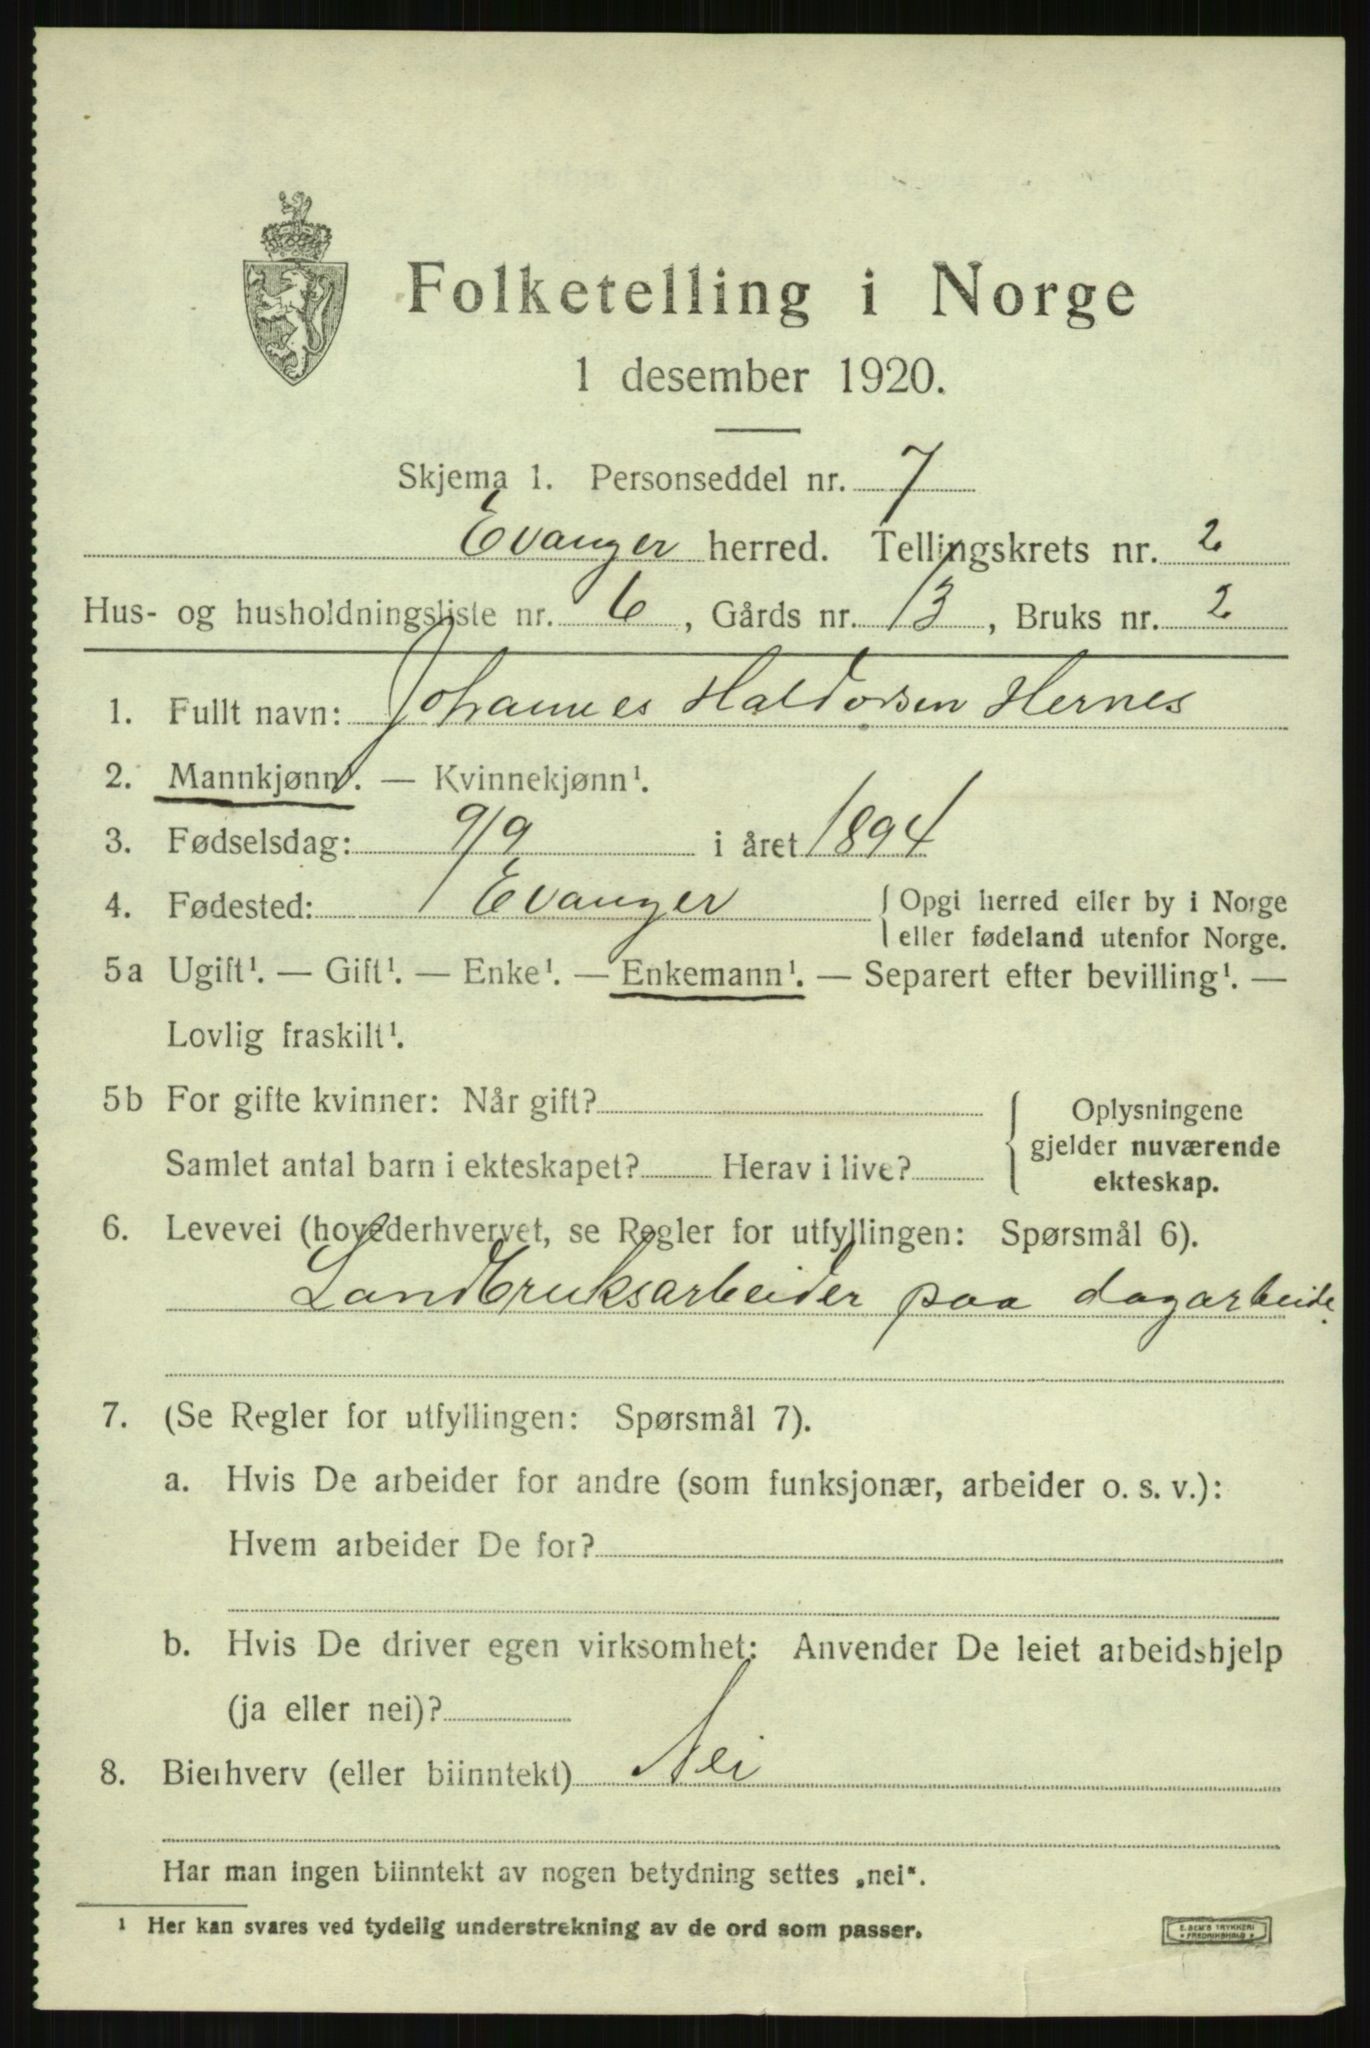 Folketelling i Norge
1 desember 1920.
Skjema 1. Personseddel nr. 7
Evanger herred. Tellingskrets nr. 2
Hus- og husholdningsliste nr. 6, Gårds nr. 13, Bruks nr. 2
1. Fullt navn: Johannes Haldorsen Hernes
2. Mannkjønn¹. — Kvinnekjønn¹.
3. Fødselsdag: 9/9 i året 1894
4. Fødested: Evanger { Opgi herred eller by i Norge
eller fødeland utenfor Norge.
5a Ugift¹. — Gift¹. — Enke¹. — Enkemann¹. — Separert efter bevilling¹. —
Lovlig fraskilt¹.
5b For gifte kvinner: Når gift? { Oplysningene
gjelder nuværende
Samlet antal barn i ekteskapet? Herav i live?
ekteskap.
6. Levevei (hovederhvervet, se Regler for utfyllingen: Spørsmål 6).
Landbruksarbeider paa dagarbeide.
7. (Se Regler for utfyllingen: Spørsmål 7).
a. Hvis De arbeider for andre (som funksjonær, arbeider o. s. v.):
Hvem arbeider De for?
b. Hvis De driver egen virksomhet: Anvender De leiet arbeidshjelp
(ja eller nei)?
8. Bierhverv (eller biinntekt) Nei
Har man ingen biinntekt av nogen betydning settes „nei“.
¹ Her kan svares ved tydelig understrekning av de ord som passer.
E. SEM'S TRYKKERI
* FREDRIKSHALD *